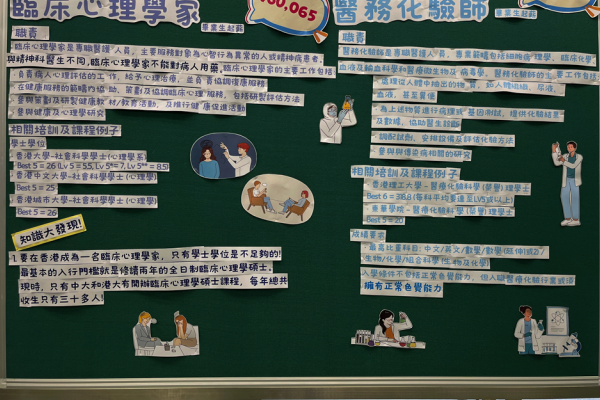 臨床心理學家
畢業生起薪
$60,065
職責
·臨床心理學家是專職醫護人員，主要服務對象為心智行為異常的人或精神病患者，
與精神科醫生不同，臨床心理學家不能對病人用藥。臨床心理學家的主要工作包括
·負責病人心理評估的工作，給予心理治療，並負責協調康復服務
·在健康服務的範疇內協助，策劃及協調臨床心理服務，包括研製評估方法
·參與策劃及研製健康教材/教育活動，及推行健康促進活動
·參與健康心理學研究
相關培訓及課程例子
學士學位
·香港大學-社會科學學士(心理學系)
Best 5 = 26 (Lv 5 = 5.5, Lv 5* = 7, Lv 5** = 8.5)
·香港中文大學-社會科學學士(心理學)
Best 5 = 25
·香港城市大學-社會科學學士(心理學)
Best 5 = 26
知識大發現!
1. 要在香港成為一名臨床心理學家，只有學士學位是不足夠的!
最基本的入行門檻就是修讀兩年的全日制臨床心理學碩士，
現時，只有中大和港大有開辦臨床心理學碩士課程，每年總共
收生只有三十多人!
醫務化驗師
畢業生起薪
職責
醫務化驗師是專職醫護人員，專業範疇包括細胞病理學、臨床化學、
血液及輸血科學和醫療微生物及病毒學。醫務化驗師的主要工作包括
·處理從人體中抽出的物質，如人體組織、尿液、
血液，甚至糞便
·為上述物質進行病理或基因測試，提供化驗結果
及數據，協助醫生診斷
·調配試劑，安排設備及評估化驗方法
·參與與傳染病相關的研究
相關培訓及課程例子
·香港理工大學-醫療化驗科學(榮譽)理學士
Best 6 = 38.8 (每科平均要達至LV5或以上)
·東華學院-醫療化驗科學(榮譽)理學士
Best 5 = 20
成績要求
·最高比重科目：中文/英文/數學/數學(延伸1或2)/
生物/化學/組合科學(生物及化學)
入學條件不包括正常色覺能力，但入職醫療化驗行業必須
擁有正常色覺能力